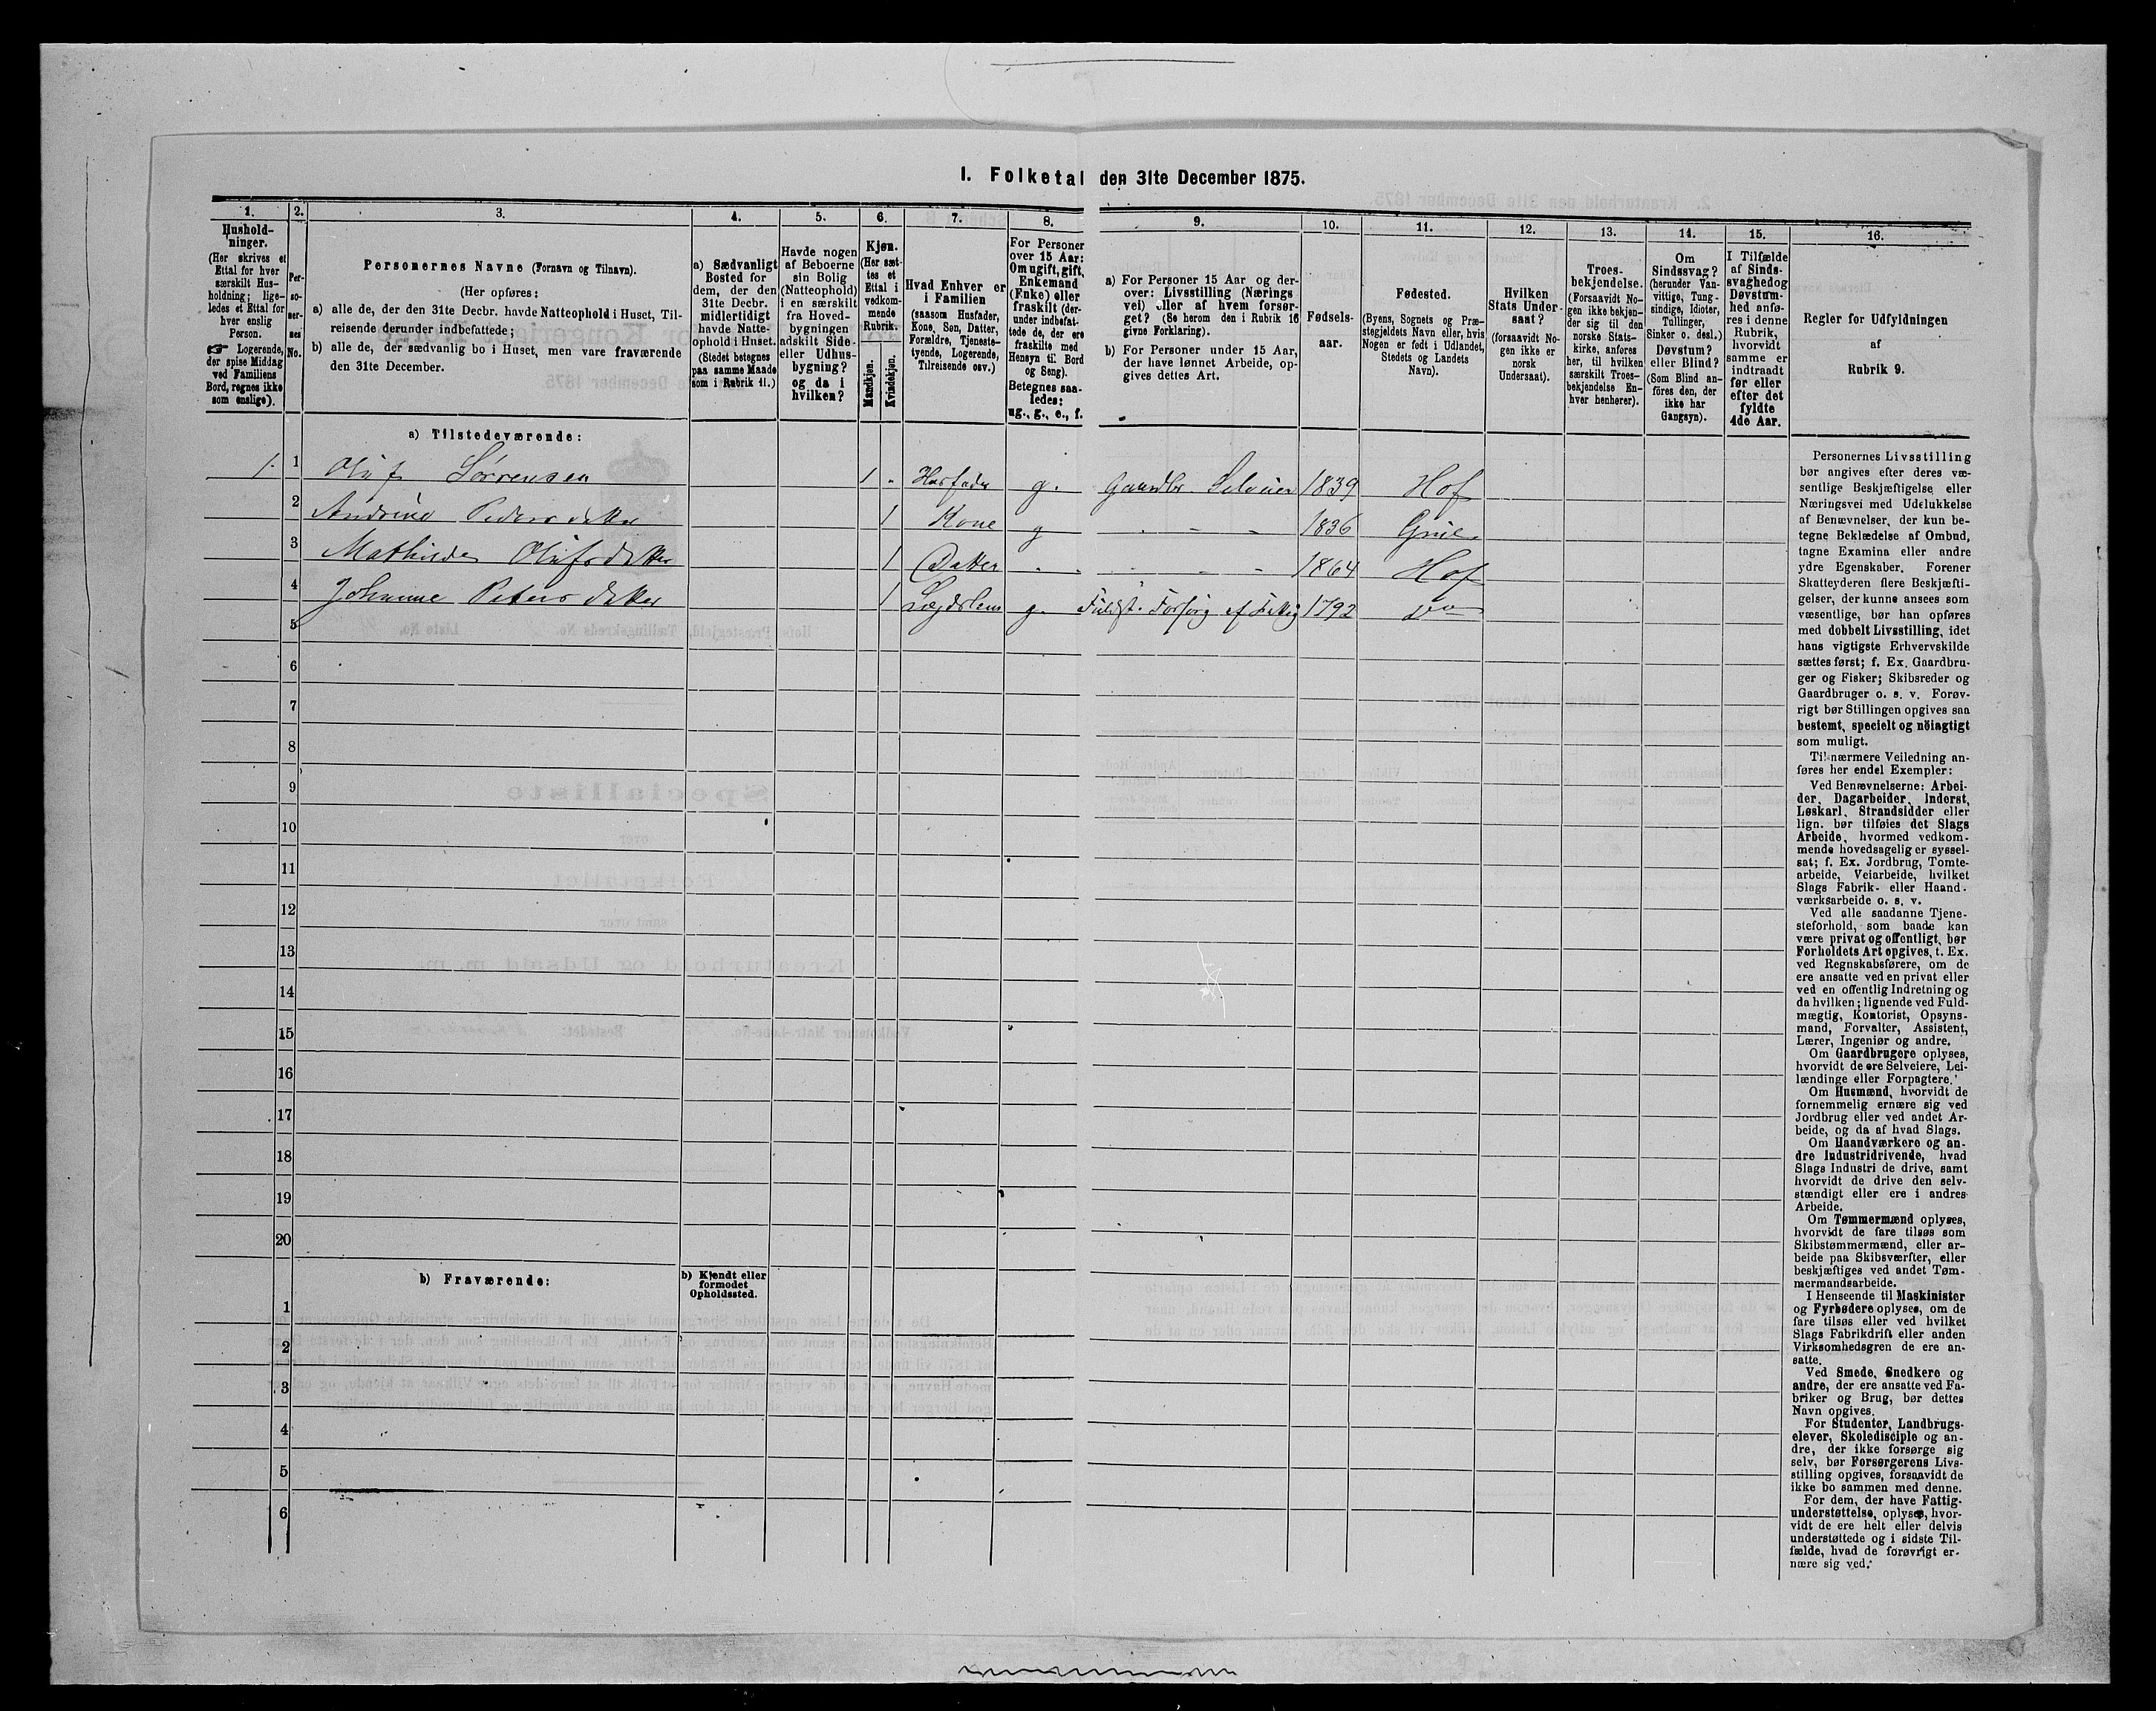 1. Folketal den 31te December 1875.
1. 2. 3. 4. 5. 6. 7. 8. 9. 10. 11. 12. 13. 14. 15. 16.
Hushold-
ninger.
(Her skrives et
Ettal for hver
særskilt Hus-
holdning; lige-
ledes et Ettal for
hver enslig
Person.
☞ Logerende,
der spise Middag
ved Familiens
Bord, regnes ikke
som enslige).
Per-
so-
ner-
nes
No.
Personernes Navne (Fornavn og Tilnavn).
(Her opføres:
a) alle de, der den 31te Decbr. havde Natteophold i Huset, Til-
reisende derunder indbefattede;
b) alle de, der sædvanlig bo i Huset, men vare fraværende
den 31te December.
a) Sædvanligt
Bosted for
dem, der den
31te Decbr.
midlertidigt
havde Natte-
ophold i Huset.
(Stedet betegnes
paa samme Maade
som i Rubrik 11.)
Havde nogen
af Beboerne
sin Bolig
(Natteophold)
i en særskilt
fra Hoved-
bygningen
adskilt Side-
eller Udhus-
bygning?
og da i
hvilken?
Kjøn.
(Her sæt-
tes et
Ettal i
vedkom-
mende
Rubrik.
Mandkjøn.
Kvindekjøn.
Hvad Enhver er
i Familien
(saasom Husfader,
Kone, Søn, Datter,
Forældre, Tjeneste-
tyende, Logerende,
Tilreisende osv.)
For Personer
over 15 Aar:
Om ugift, gift,
Enkemand
(Enke) eller
fraskilt (der-
under indbefat-
tede de, der ere
fraskilte med
Hensyn til Bord
og Seng).
Betegnes saa-
ledes:
ug., g., e., f.
a) For Personer 15 Aar og der-
over: Livsstilling (Nærings
vei) eller af hvem forsør-
get? (Se herom den i Rubrik 16
givne Forklaring).
b) For Personer under 15 Aar,
der have lønnet Arbeide, op-
gives dettes Art.
Fødsels-
aar.
Fødested.
(Byens, Sognets og Præ-
stegjeldets Navn eller, hvis
Nogen er født i Udlandet,
Stedets og Landets
Navn).
Hvilken
Stats Under-
saat?
(forsaavidt No-
gen ikke er
norsk
Undersaat).
Troes-
bekjendelse.
(Forsaavidt No-
gen ikke bekjen-
der sig til den
norske Stats-
kirke, anføres
her, til hvilken
særskilt Troes-
bekjendelse En-
hver henhører).
Om
Sindssvag?
(herunder Van-
vittige, Tung-
sindige, Idioter,
Tullinger,
Sinker o. desl.)
Døvstum?
eller Blind?
(Som Blind an-
föres den, der
ikke har
Gangsyn).
I Tilfælde
af Sinds-
svaghed og
Døvstum-
hed anfø-
res i denne
Rubrik,
hvorvidt
samme er
indtraadt
før eller
efter det
fyldte
4de Aar.
Regler for Udfyldningen
af
Rubrik 9.
a) Tilstedeværende:
1. 1 Oluf Sørrensen 1 „ Husfader g. Gaardbr. Selveier 1839 Hof
2 Andrine Pedersdatter 1 Kone g „ – – 1836 Grue
3 Mathilde Olufsdatter 1 Datter „ „ „ – – 1864 Hof
4 Johanne Petersdatter 1 Lægdslem g. Fuldst. Forsørg af Fattig 1792 do
5
6
7
8
9
10
11
12
13
14
15
16
17
18
19
20
b) Fraværende: b) Kjendt eller
formodet
Opholdssted.
1
2
3
4
5
6
Personernes Livsstilling
bør angives efter deres væ-
sentlige Beskjæftigelse eller
Næringsvei med Udelukkelse
af Benævnelser, der kun be-
tegne Beklædelse af Ombud,
tagne Examina eller andre
ydre Egenskaber. Forener
Skatteyderen flere Beskjæfti-
gelser, der kunne ansees som
væsentlige, bør han opføres
med dobbelt Livsstilling, idet
hans vigtigste Erhvervskilde
sættes først; f. Ex. Gaardbru-
ger og Fisker; Skibsreder og
Gaardbruger o. s. v. Forøv-
rigt bør Stillingen opgives saa
bestemt, specielt og nöiagtigt
som muligt.
Til nærmere Veiledning an-
føres her endel Exempler:
Ved Benævnelserne: Arbei-
der, Dagarbeider, Inderst,
Løskarl, Strandsidder eller
lign. bør tilføies det Slags
Arbeide, hvormed vedkom-
mende hovedsagelig er syssel-
sat; f. Ex. Jordbrug, Tomte-
arbeide, Veiarbeide, hvilket
Slags Fabrik- eller Haand-
værksarbeide o. s. v.
Ved alle saadanne Tjene-
steforhold, som baade kan
være privat og offentligt, bør
Forholdets Art opgives, t. Ex.
ved Regnskabsførere, om de
ere ansatte ved en privat eller
ved en offentlig Indretning og
da hvilken; lignende ved Fuld-
mægtig, Kontorist, Opsyns-
mand, Forvalter, Assistent,
Lærer, Ingeniør og andre.
Om Gaardbrugere oplyses,
hvorvidt de ere Selveiere, Lei-
lændinge eller Forpagtere.
Om Husmænd, hvorvidt de
fornemmelig ernære sig ved
Jordbrug eller ved andet Ar-
beide, og da af hvad Slags.
Om Haandværkere og an-
dre Industridrivende, hvad
Slags Industri de drive, samt
hvorvidt de drive den selv-
stændigt eller ere i andres
Arbeide.
Om Tømmermænd oplyses,
hvorvidt de fare tilsøs som
Skibstømmermænd, eller ar-
beide paa Skibsværfter, eller
beskjæftiges ved andet Tøm-
mermandsarbeide.
I Henseende til Maskinister
og Fyrbødere oplyses, om de
fare tilsøs eller ved hvilket
Slags Fabrikdrift eller anden
Virksomhedsgren de ere an-
satte.
Ved Smede, Snedkere og
andre, der ere ansatte ved Fa-
briker og Brug, bør dettes
Navn opgives.
For Studenter, Landbrugs-
elever, Skoledisciple og an-
dre, der ikke forsørge sig
selv, bør Forsørgerens Livs-
stilling opgives, forsaavidt de
ikke bo sammen med denne.
For dem, der have Fattig-
understøttelse, oplyses, hvor-
vidt de ere helt eller delvis
understøttede og i sidste Til-
fælde, hvad de forøvrigt er-
nære sig ved.